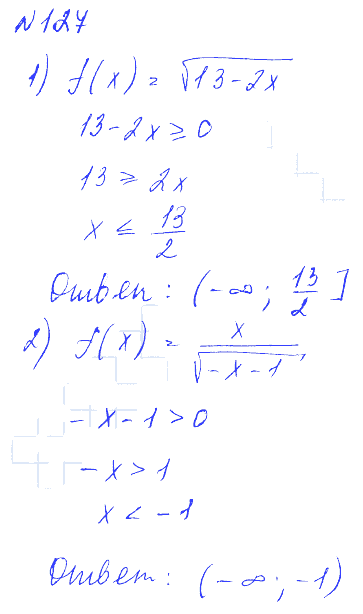 №127
1) f(x) = √(13-2x)
13-2x ≥ 0
13 ≥ 2x
x ≤ 13/2
Ответ: (-∞; 13/2]
2) f(x) = x/√(-x-1),
-x-1>0
-x>1
x<-1
Ответ: (-∞; -1)